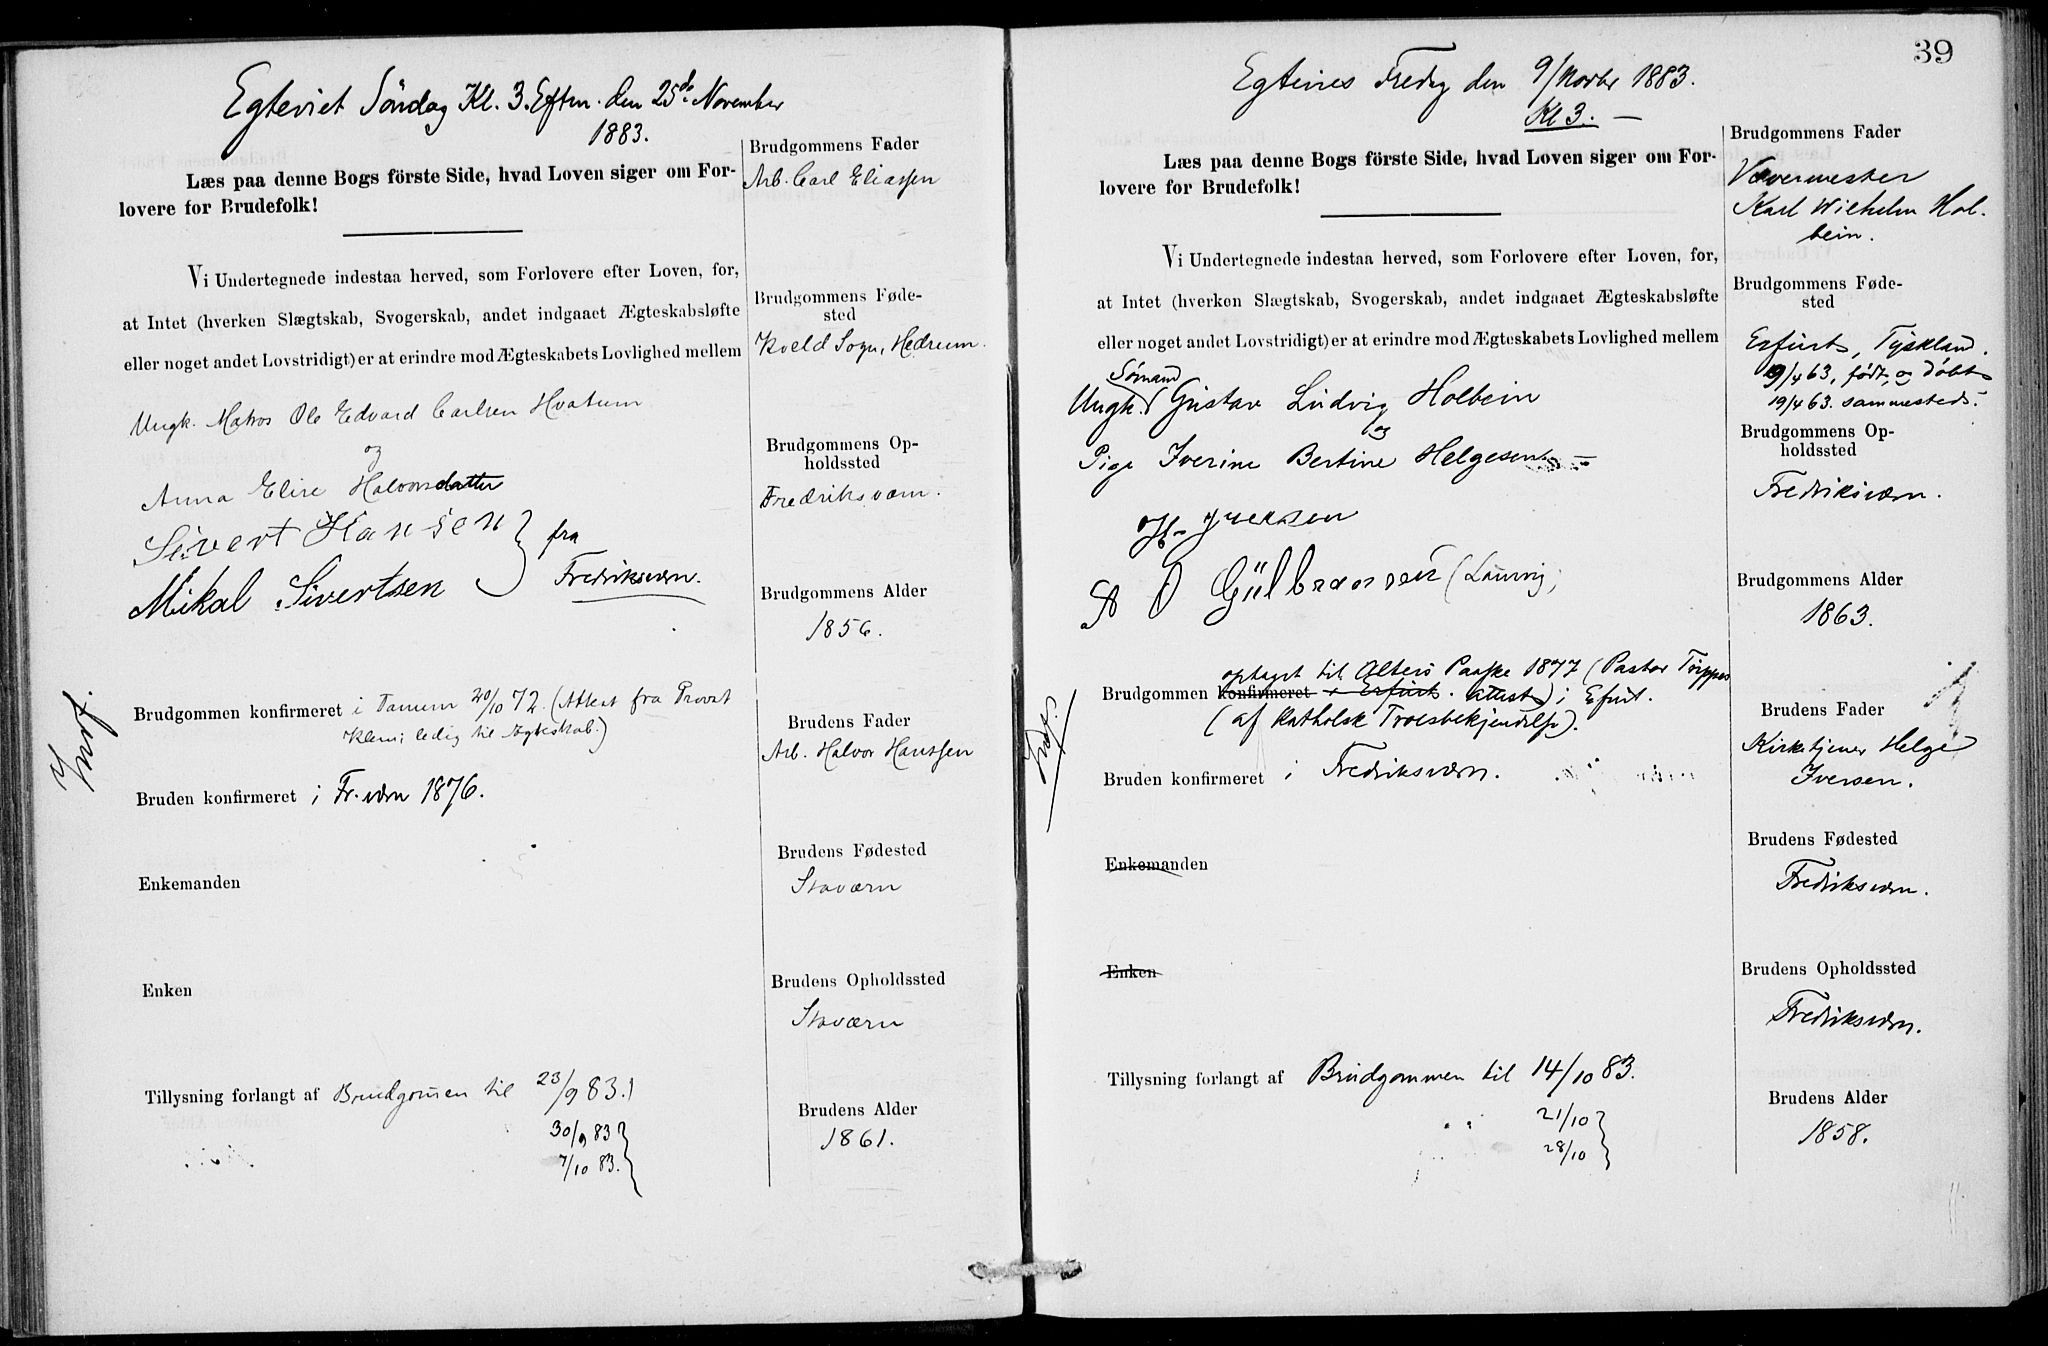 Egteviet Söndag Kl. 3. Eftm. den 25de November
1883.
Læs paa denne Bogs förste Side, hvad Loven siger om For-
lovere for Brudefolk!
Vi Undertegnede indestaa herved, som Forlovere efter Loven, for,
at Intet (hverken Slægtskab, Svogerskab, andet indgaaet Ægteskabsløfte
eller noget andet Lovstridigt) er at erindre mod Ægteskabets Lovlighed mellem
Ungk. Matros Ole Edvard Carlsen Hvatum
og
Anna Elise Halvorsdatter
Sivert Hansen } fra
Mikal Sivertsen Fredriksværn.
Brudgommen konfirmeret i Tanum 20/10 72. (Attest fra Provst
Klem; ledig til Ægteskab.)
Bruden konfirmeret i Fr.værn 1876.
Enkemanden
Enken
Tillysning forlangt af Brudgommen til 23/9 83.
30/9 83 }
7/10 83.
Brudgommens Fader
Arb. Carl Eliassen
Brudgommens Føde-
sted
Kveld Sogn, Hedrum.
Brudgommens Op-
holdssted
Fredriksværn.
Brudgommens Alder
1856.
Brudens Fader
Arb. Halvor Hanssen
Brudens Fødested
Staværn
Brudens Opholdssted
Staværn
Brudens Alder
1861.
39
Egtevies Fredag den 9/Novbr 1883.
Kl 3. —
Læs paa denne Bogs förste Side, hvad Loven siger om For-
lovere for Brudefolk!
Vi Undertegnede indestaa herved, som Forlovere efter Loven, for,
at Intet (hverken Slægtskab, Svogerskab, andet indgaaet Ægteskabsløfte
eller noget andet Lovstridigt) er at erindre mod Ægteskabets Lovlighed mellem
Sömand
Ungk. Gustav Ludvig Holbein
og
Pige Iverine Bertine Helgesen —
H. Iversen
A O Gülbransen (Laurvig)
optaget til Alters Paaske 1877 (Pastor
Brudgommen konfirmeret i Erfurt. attest) i Efurt.
(af Katholsk Troesbekjendelse).
Bruden konfirmeret i Fredriksværn.
Enkemanden
Enken
Tillysning forlangt af Brudgommen til 14/10 83.
" 21/10 }
28/10
Brudgommens Fader
Vævermester
Karl Wilhelm Hol-
bein.
Brudgommens Føde-
sted
Erfurt, Tyskland.
9/4 63, født, og døbt
19/4 63. sammesteds.
Brudgommens Op-
holdssted
Fredriksværn.
Brudgommens Alder
1863.
Brudens Fader
Kirketjener Helge
Iversen.
Brudens Fødested
Fredriksværn.
Brudens Opholdssted
Fredriksværn.
Brudens Alder
1858.